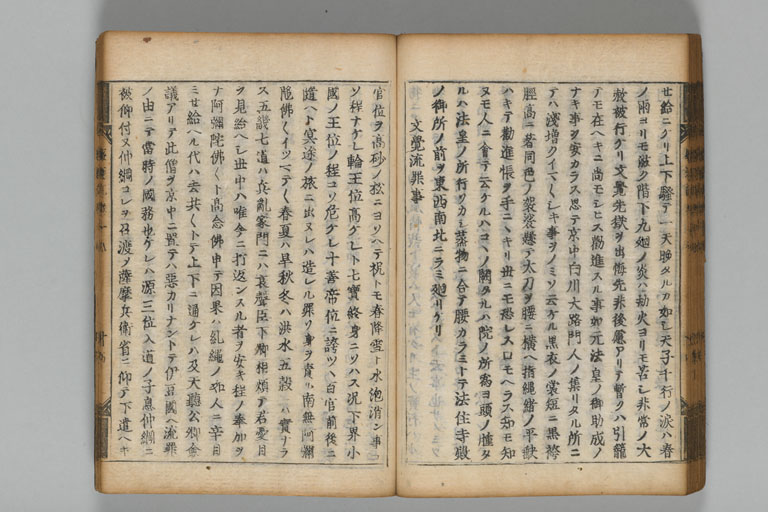 セ給ニケリ上下騒テ一天曉タルカ如シ天子千行ノ涙ハ春
ノ雨ヨリモ滋ク階下九廻ノ炎ハ劫火ヨリモ苦シ非常ノ大
赦被行ケリ文覺先獄ヲ出侮先非後慮アリテ暫クハ引籠
テモ在ヘキニ尚モシヒス勸進スル事如元法皇ノ御助成ノ
ナキ事ヲ安カラス思テ京中白川大路門人ノ集リタル所ニ
テハ淺増クイマ〱シキ事ヲノミソ云ケル黒衣ノ裳短ニ黒袴
脛高ニ著同色ノ袈裟懸テ太刀ヲ腰ニ横ヘ指縄緒ノ平駄
ハキテ勸進帳ヲ手ニニキリ世ニモ恐レス口モヘラス知モ知
ヌモ人ニ會テ云ケルハコハノ關タルハ院ノ所爲ヨ頭ノ腫タ
ルハ法皇ノ所行ソカシ蒸物ニ合テ腰カラミトテ法住寺殿
ノ御所ノ前ヲ東西南北ニラミ廻リケリ
文覺流罪事
官位ヲ高砂ノ松ニヨソヘテ祝トモ春降雪ト水泡消ン事
ソ程ナケレ輪王位高ケレト七寶終身ニソハス况下界小
國ノ王位ノ程コソ危ケレ十善帝位ニ誇ツヽ百官前後ニ
遶ヘト冥途ノ旅ニ出ヌレハ造レル罪ソ身ヲ責ル南無阿彌
陀佛〱イツマテ〱春夏ハ旱秋冬ハ洪水五穀ハ實ナラ
ス五畿七道ハ兵亂家門ニハ哀聲臣下卿相煩テ君憂目
ヲ見給ヘシ世中ハ唯今ニ打返ンスル者ヲ安キ程ノ奉加ヲ
ナ阿彌陀佛〱ト高念佛申テ因果ハ糺縄ノ如人ニ辛目
ミセ給ヘル代ハ去共〱トテ上下ニ通ケレハ及天聽公卿僉
議アリテ此僧ヲ京中ニ置テハ惡カリナントテ伊豆國ヘ流罪
ノ由ニテ當時ノ國務也ケレハ源三位入道ノ子息仲綱ニ
被仰付ヌ仲綱コレヲ召渡ノ薩摩兵衛省ニ仰テ下遣ヘキ